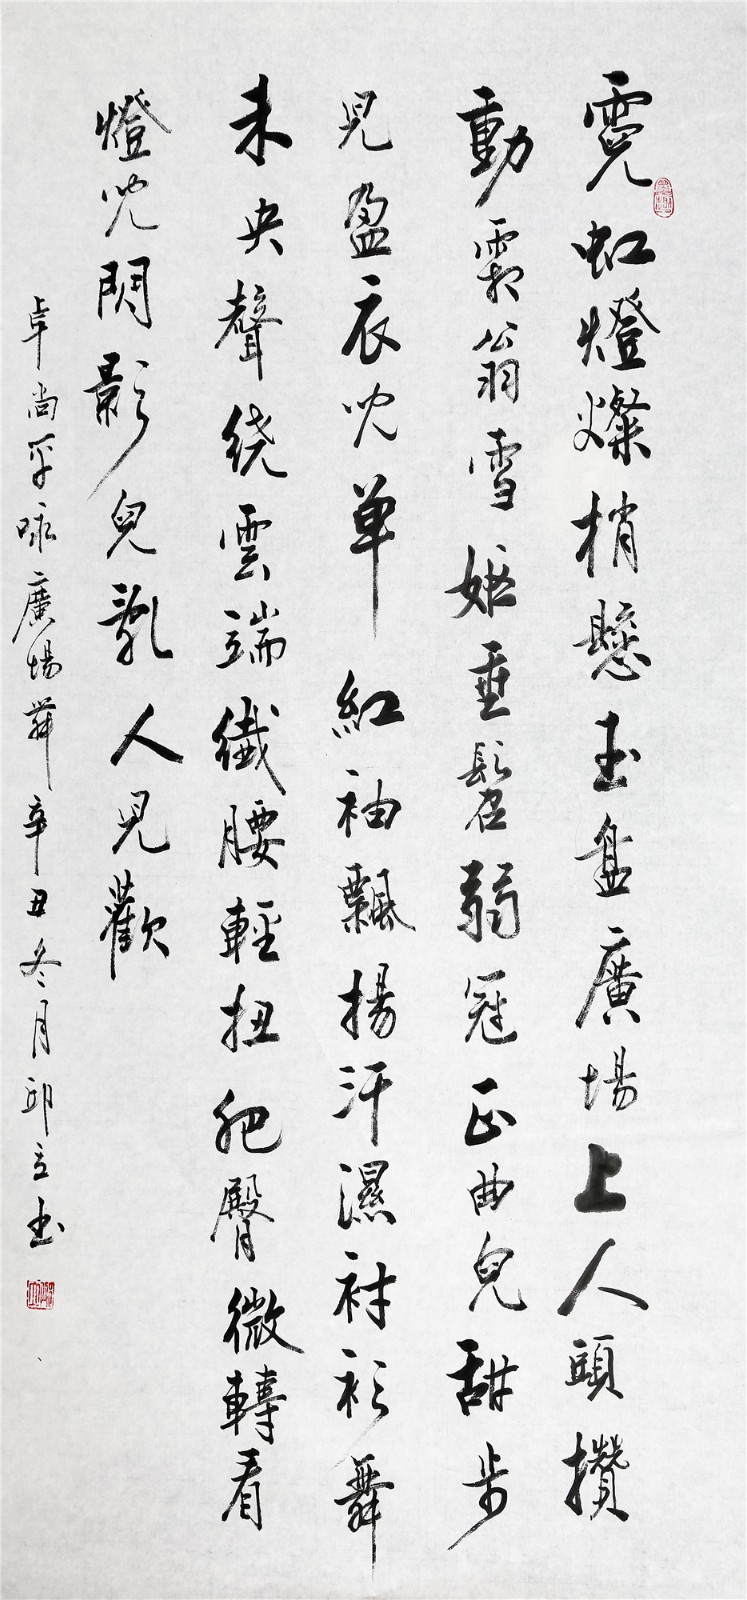 霓虹燈燦梢懸玉盘廣場上人頭攢
動霜翁雪姬垂髫弱冠正曲兒甜步
兒盈衣兒单紅袖飄揚汗濕衬衫舞
未央聲绕雲端纖腰輕扭肥臀微轉看
燈兒閃影兒亂人兒歡
卓尚平咏廣場舞辛丑冬月邱立玉